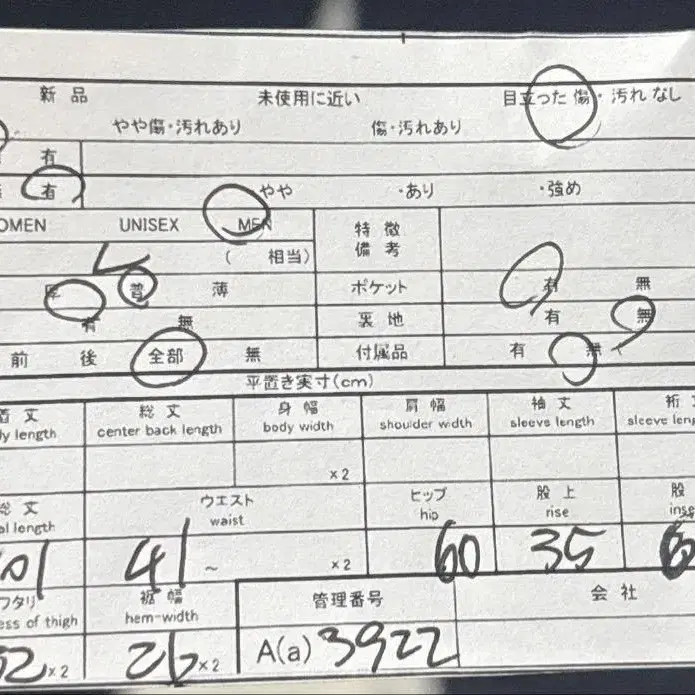 新品 未使用に近い 目立った傷・汚れなし
やや傷・汚れあり 傷・汚れあり
有
有 やや ・あり ・強め
OMEN UNISEX MEN 特徴
備考
L ( 相当)
厚 普 薄 ポケット 有 無
有 無 裏地 有 無
前 後 全部 無 付属品 有 無
平置き実寸(cm)
着丈 総丈 身幅 肩幅 袖丈 裄
ly length center back length body width shoulder width sleeve length sleeve leng
×2
総丈 ウエスト ヒップ 股上 股
al length waist hip rise inse
101 41 ~ ×2 60 35
フタリ 裾幅 管理番号 会社
ess of thigh hem-width
×2 26 ×2 A(a) 3922